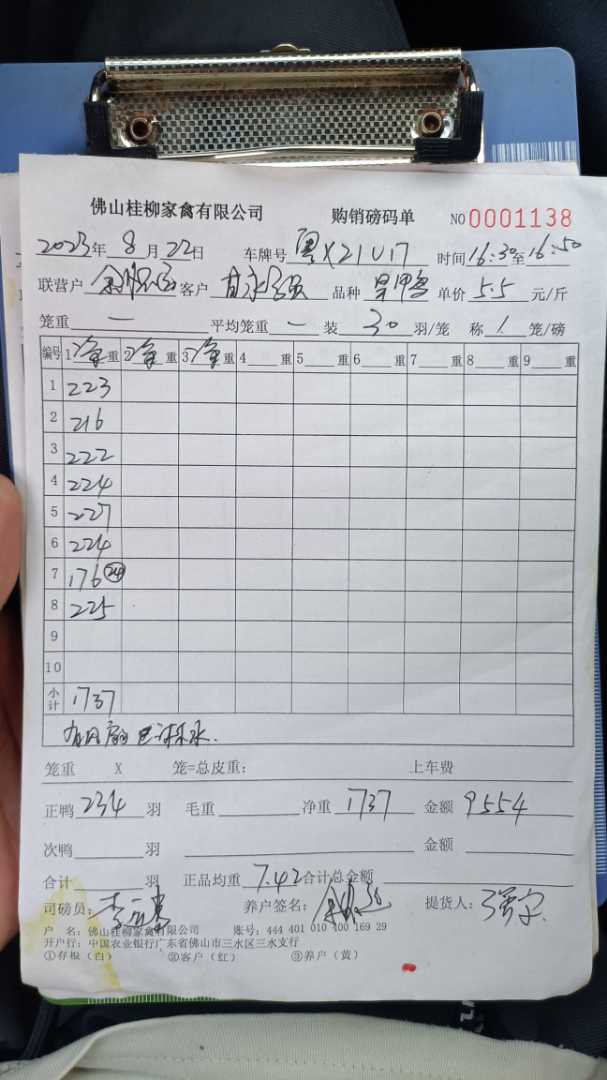 佛山桂柳家禽有限公司 购销磅码单 NO 0001138
2023年 8 月 22日 车牌号 粤X21U17 时间16:30至16:50
联营户 客户 甘永强 品种 单价 5.5 元/斤
笼重 一 平均笼重 一 装 30 羽/笼 称 1 笼/磅
编号 1净重 重 2净重 重 3净重 重 4 重 5 重 6 重 7 重 8 重 9 重
1 223
2 216
3 222
4 224
5 227
6 224
7 176 24
8 225
9
10
小计 1737
笼重 X 笼=总皮重: 上车费
正鸭 234 羽 毛重 净重 1737 金额 9554
次鸭 羽 金额
合计 羽 正品均重 7.42 合计总金额
司磅员: 养户签名: 提货人:
户 名: 佛山桂柳家禽有限公司 账号: 444 401 010 400 169 29
开户行: 中国农业银行广东省佛山市三水区三水支行
①存根(白) ②客户(红) ③养户(黄)